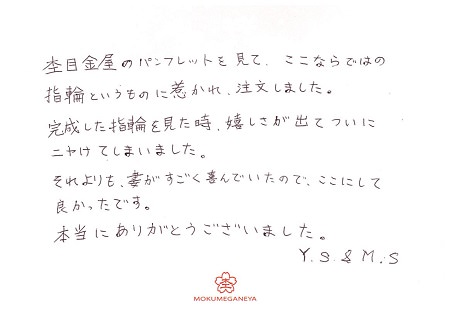 杢目金屋のパンフレットを見て、ここならではの
指輪というものに惹かれ、注文しました。
完成した指輪を見た時、嬉しさが出てついに
ニヤけてしまいました。
それよりも、妻がすごく喜んでいたので、ここにして
良かったです。
本当にありがとうございました。
Y.S.&M.S
杢
MOKUMEGANEYA